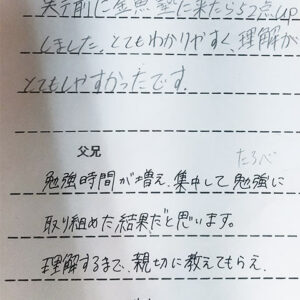 前に金魚塾に来たら52点up
しました。とてもわかりやすく、理解が
とてもしやすかったです。
父兄
勉強時間が増え、集中して勉強に
取り組めた結果だと思います。
理解するまで、親切に教えてもらえ、